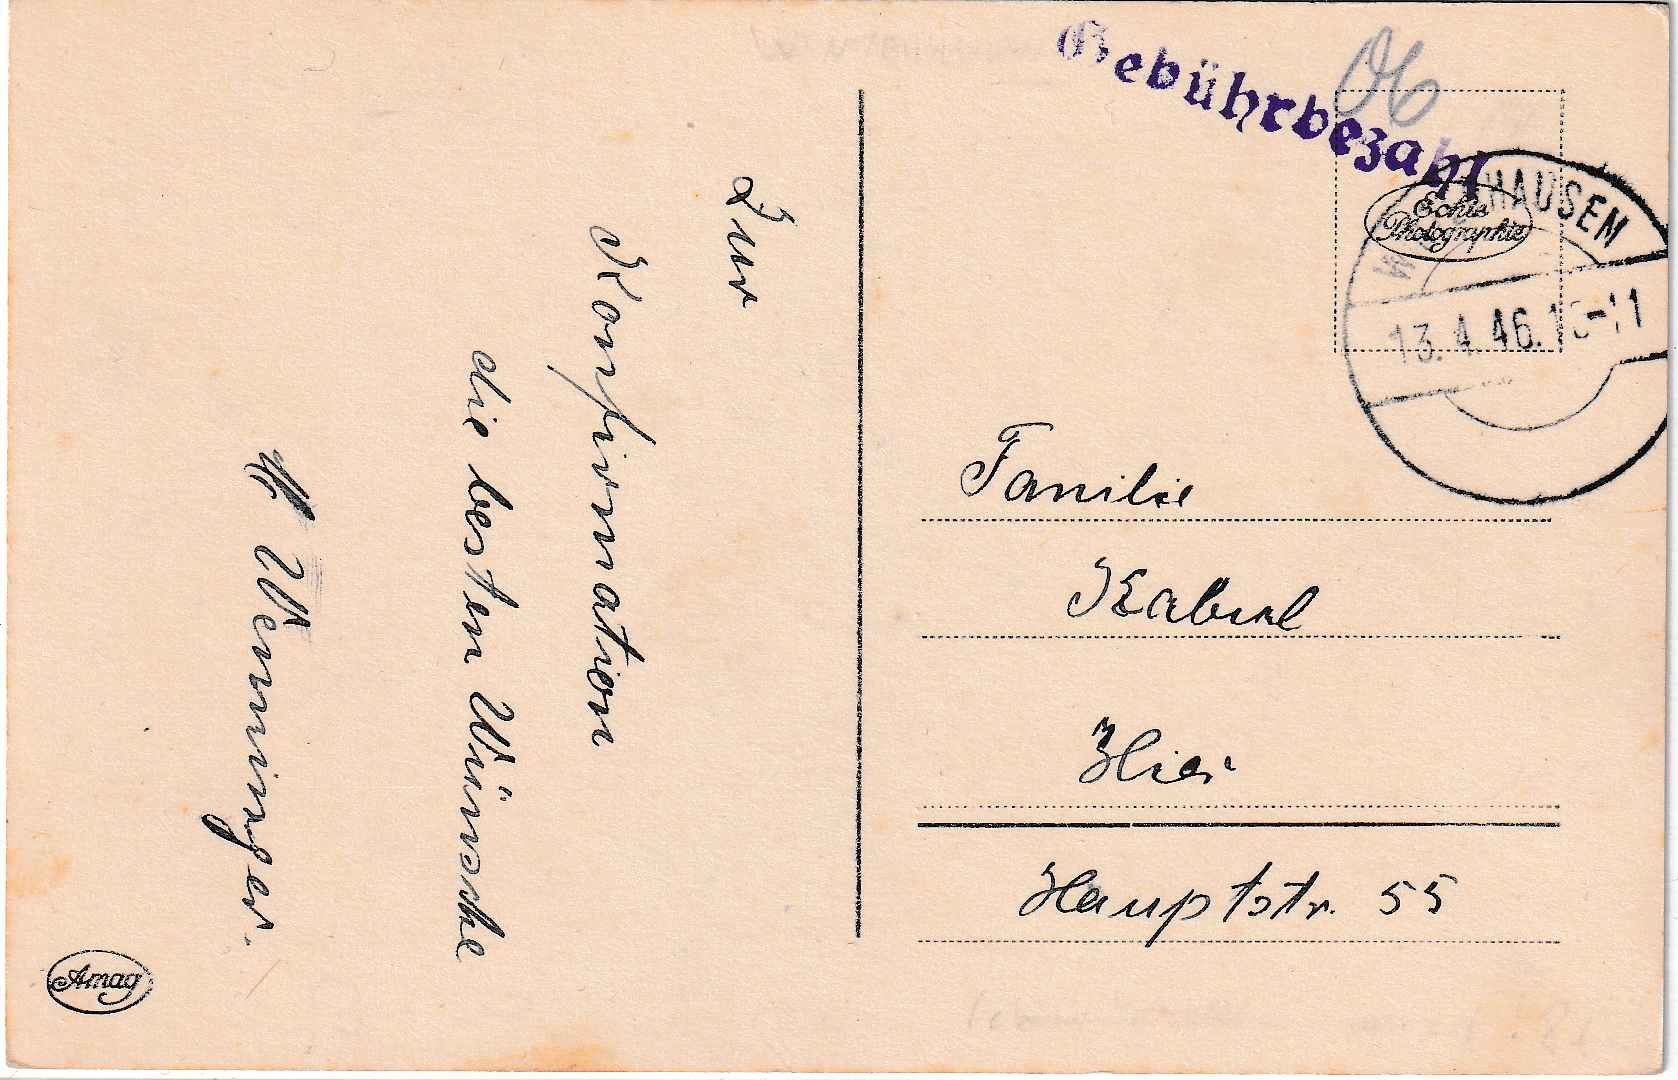 Zur
Konfirmation
die besten Wünsche
Wenninger.
Amag
Gebührbezahlt
06
Echte
Photographie
HAUSEN
13.4.46.10-11
Familie
Kabul
Hier
Hauptstr. 55